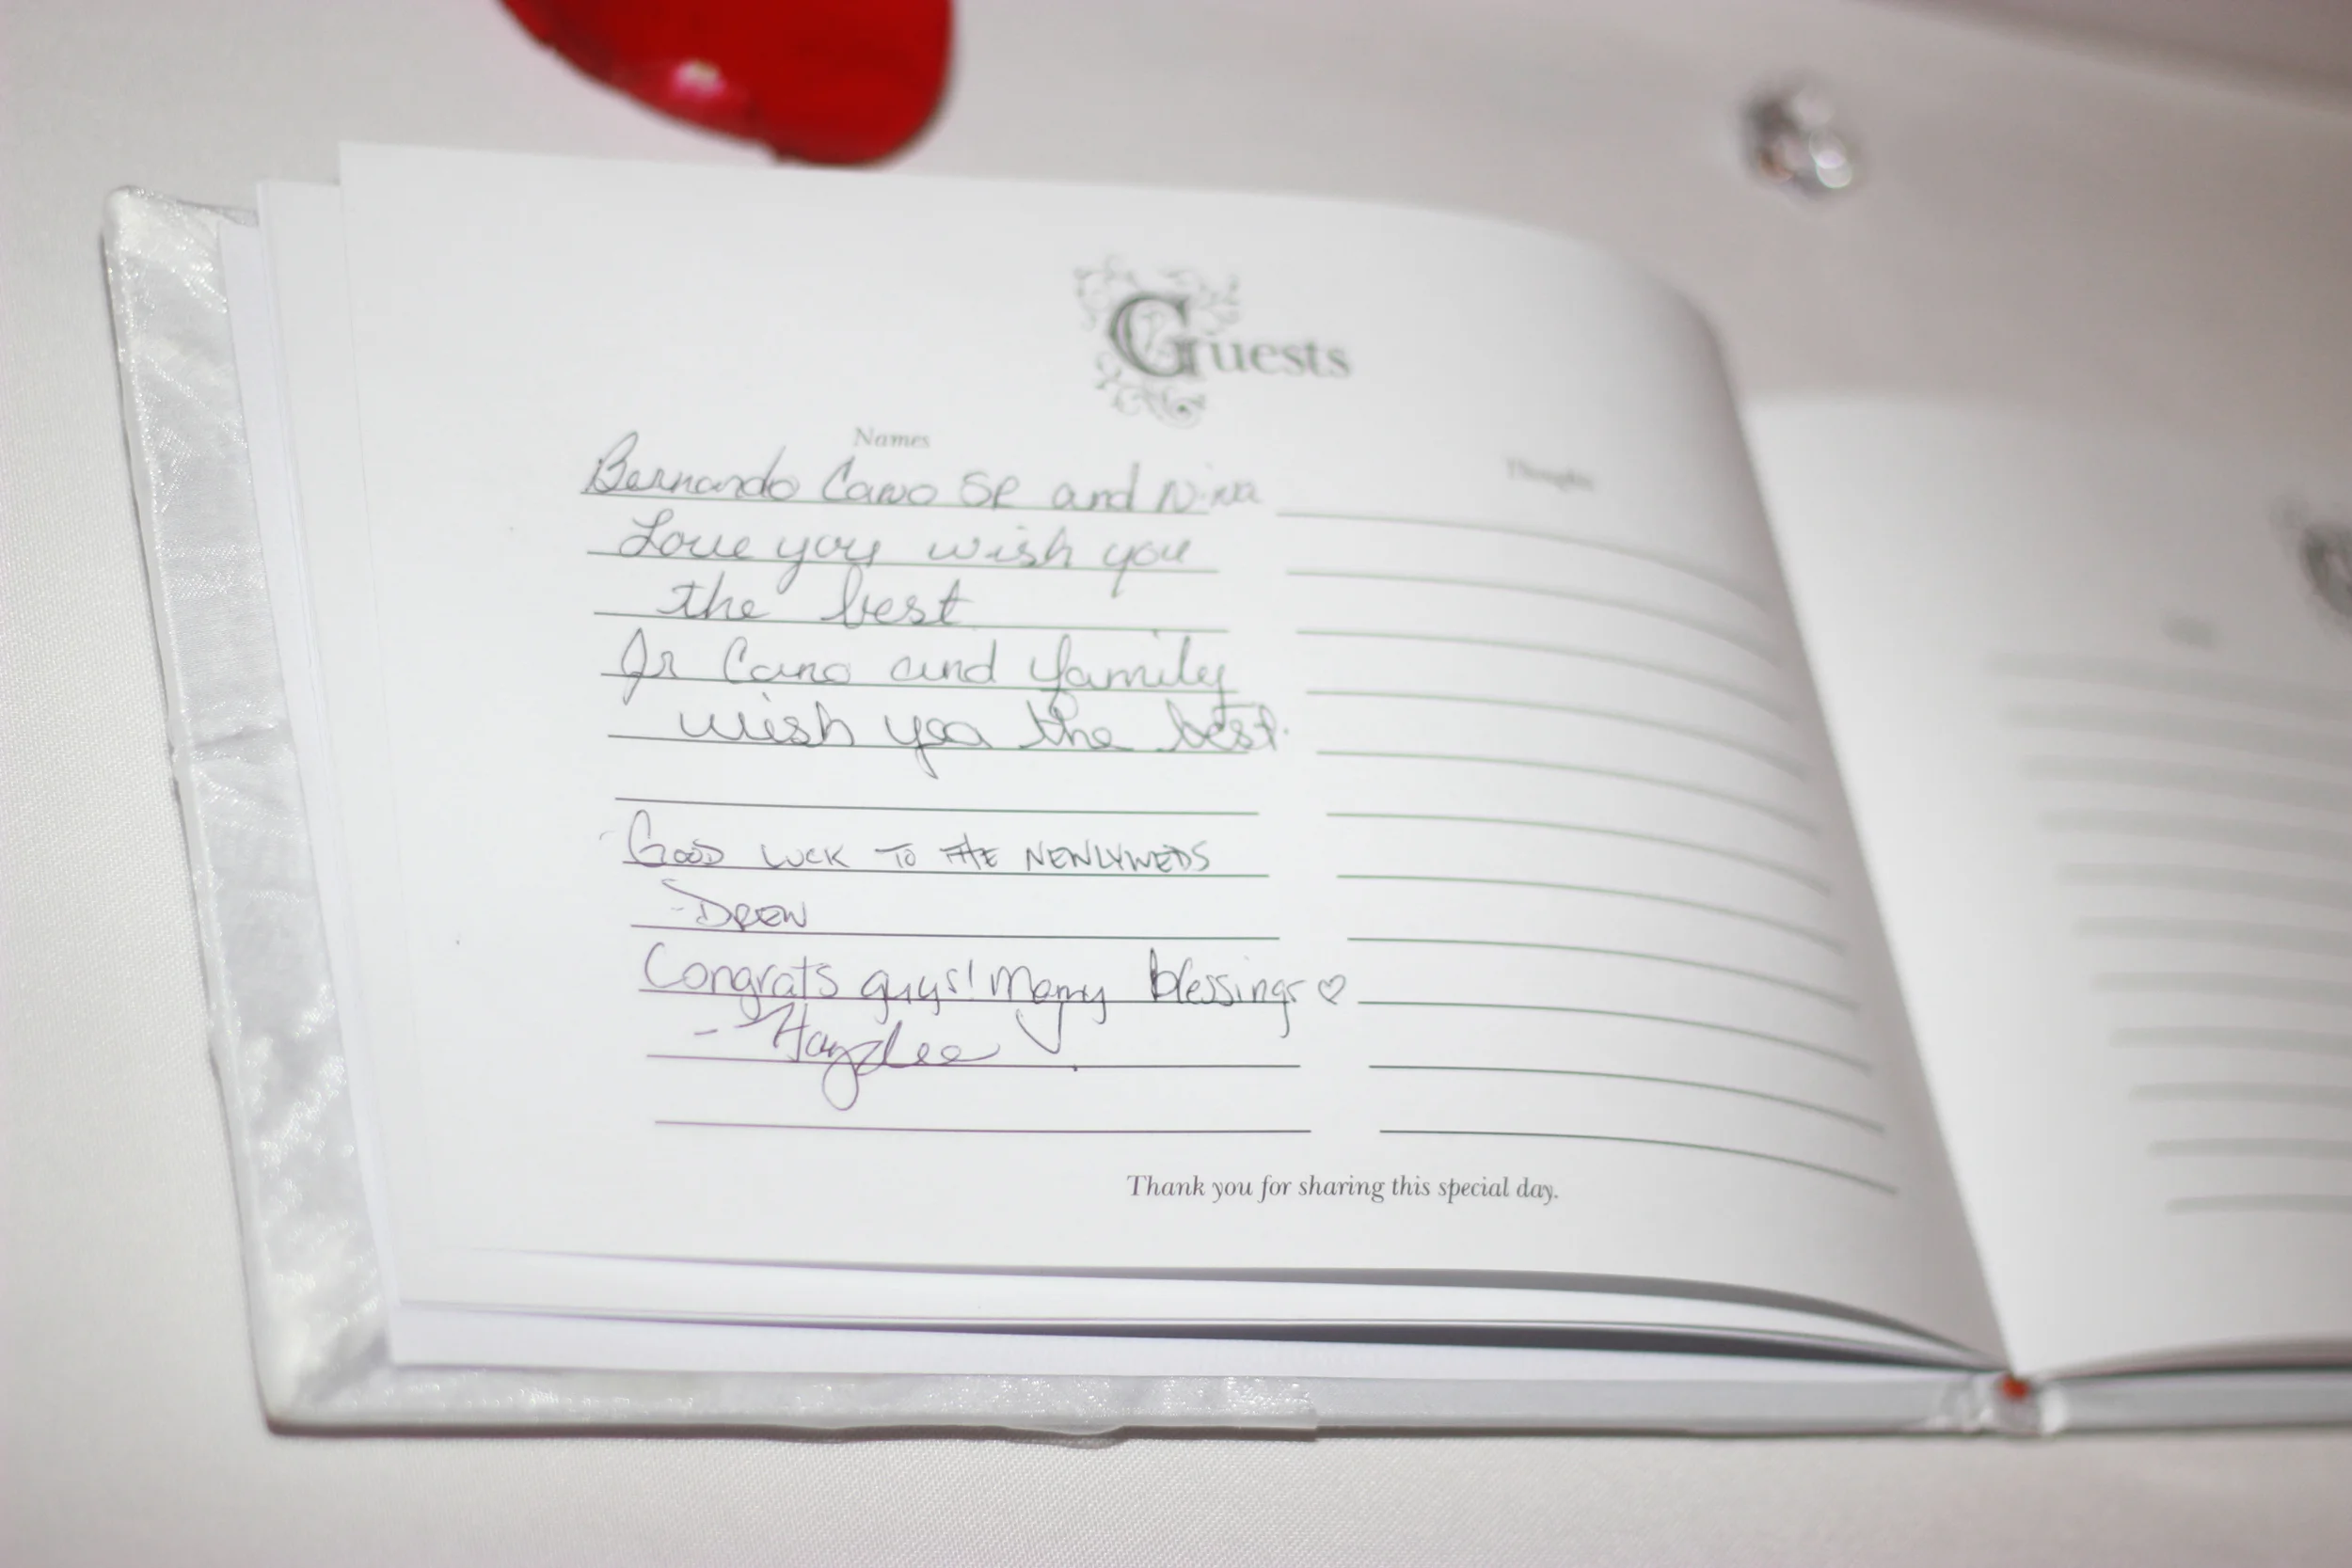 Guests
Names
Thoughts
Bernardo Cano SR and Nina
Love you wish you
the best
Jr Cano and family
wish you the best.
Good luck to the newlyweds
-Drew
Congrats guys! Many blessings ♡
- Haydee
Thank you for sharing this special day.